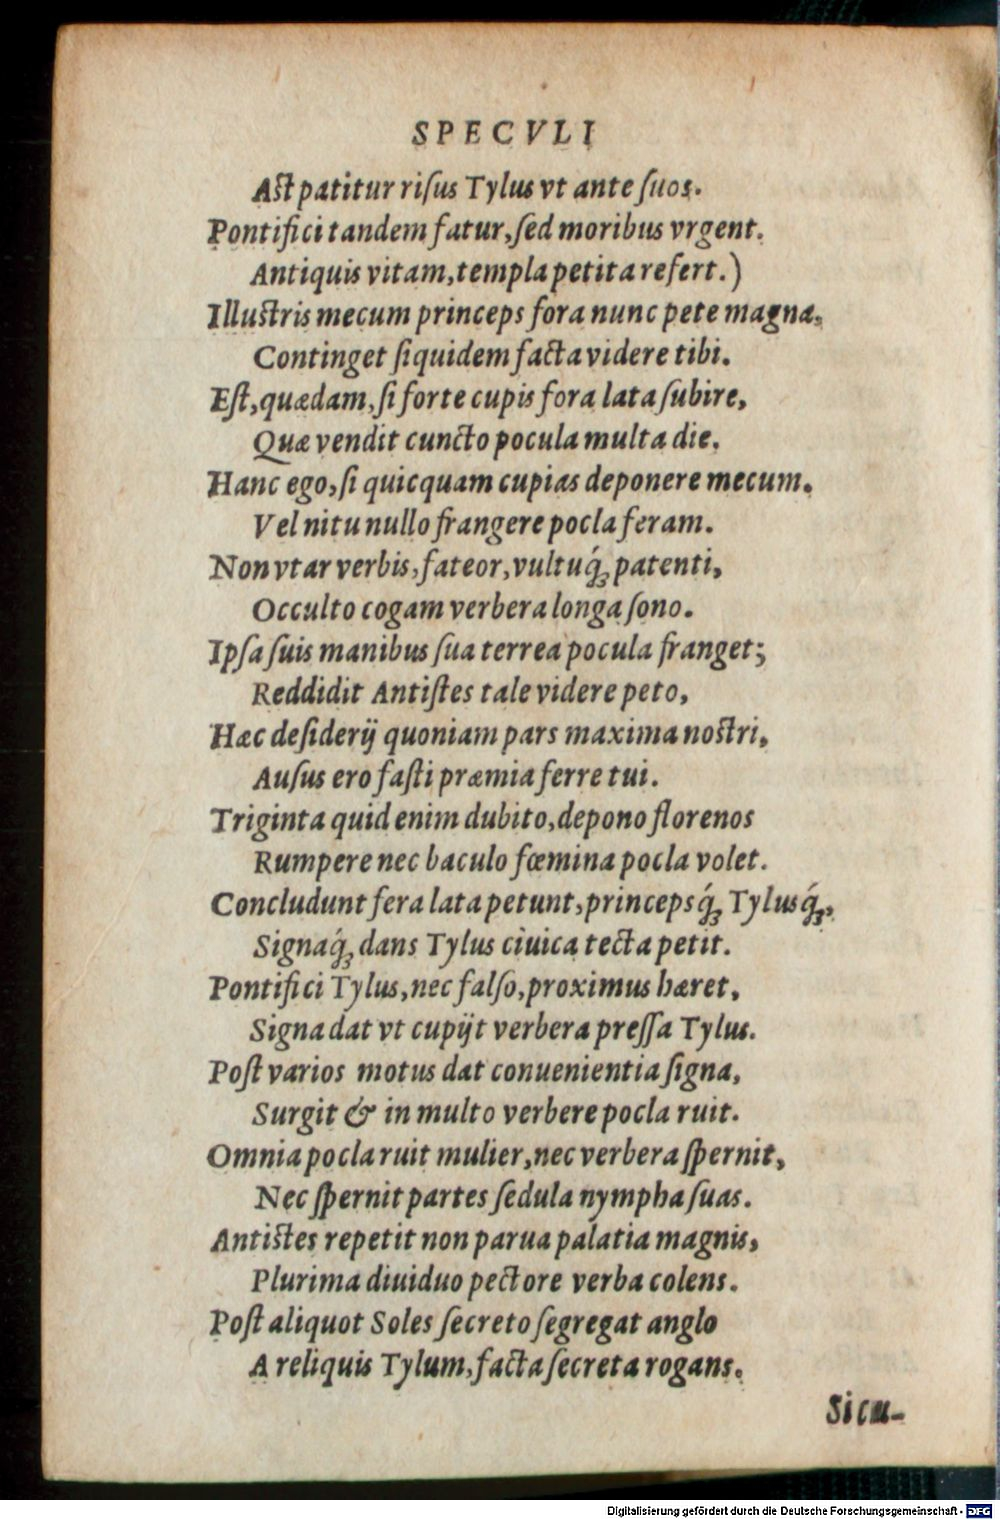 SPECVLI
Ast patitur risus Tylus vt ante suos.
Pontifici tandem fatur, sed moribus vrgent.
Antiquis vitam, templa petita refert.)
Illustris mecum princeps fora nunc pete magna,
Continget siquidem facta videre tibi.
Est, quædam, si forte cupis fora lata subire,
Quæ vendit cuncto pocula multa die.
Hanc ego, si quicquam cupias deponere mecum.
Vel nitu nullo frangere pocla feram.
Non vtar verbis, fateor, vultuq́; patenti,
Occulto cogam verbera longa sono.
Ipsa suis manibus sua terrea pocula franget;
Reddidit Antistes tale videre peto,
Hæc desiderij quoniam pars maxima nostri,
Ausus ero fasti præmia ferre tui.
Triginta quid enim dubito, depono florenos
Rumpere nec baculo fœmina pocla volet.
Concludunt fera lata petunt, princepsq́; Tylusq́;,
Signaq́; dans Tylus ciuica tecta petit.
Pontifici Tylus, nec falso, proximus hæret,
Signa dat vt cupijt verbera pressa Tylus.
Post varios motus dat conuenientia signa,
Surgit & in multo verbere pocla ruit.
Omnia pocla ruit mulier, nec verbera spernit,
Nec spernit partes sedula nympha suas.
Antistes repetit non parua palatia magnis,
Plurima diuiduo pectore verba colens.
Post aliquot Soles secreto segregat anglo
A reliquis Tylum, facta secreta rogans.
Sicu-
Digitalisierung gefördert durch die Deutsche Forschungsgemeinschaft - DFG